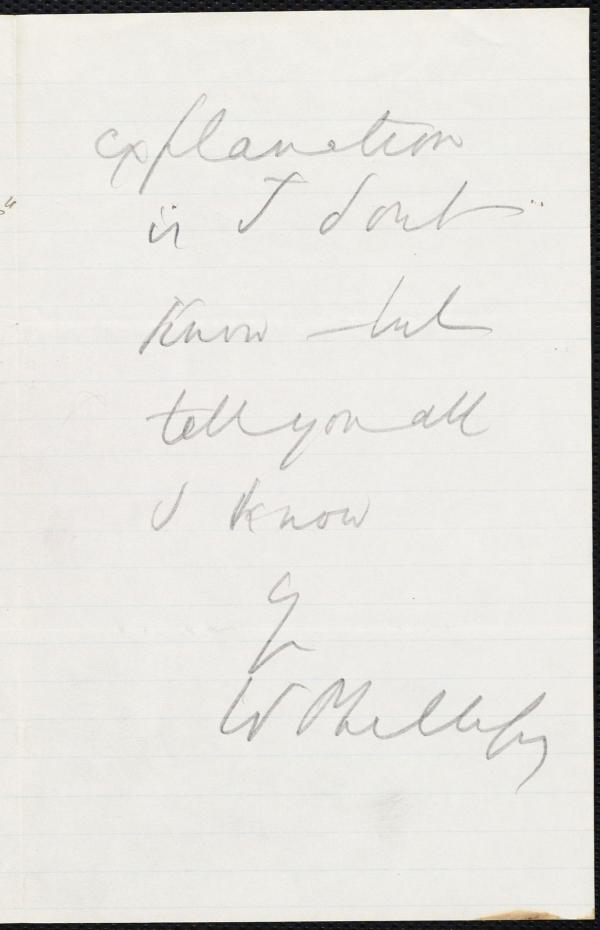 explanation
is I dont
know – but
tell you all
I know
Yr
W Phillips